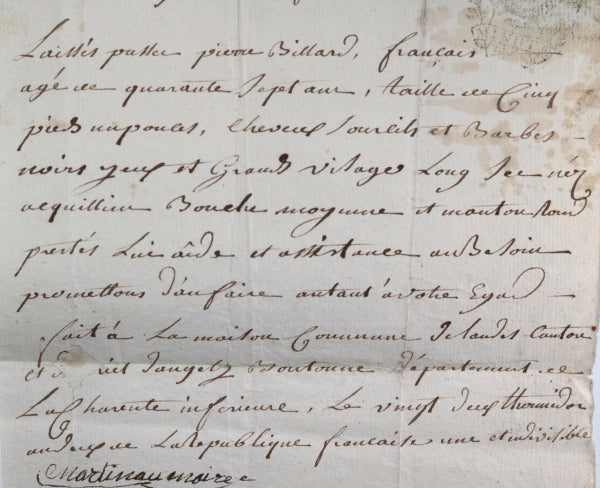 Laissés passer pierre Billard, français
agé de quarante sept ans, taille de Cinq
pieds un pouces, cheveux Sourcils et Barbes -
noirs yeux et Grands visage Long Sec néz
acquillin Bouche moyenne et manton Rond
prestés Lui aide et assistance au Besoin
promettons d'an faire autant à votre Egard -
fait à La maison Commune Canton
et d'angely Boutonne département de
La Charente inferieure, Le vingt deux thermidor
an deux de La Republique française une et indivisible
Martinau maire